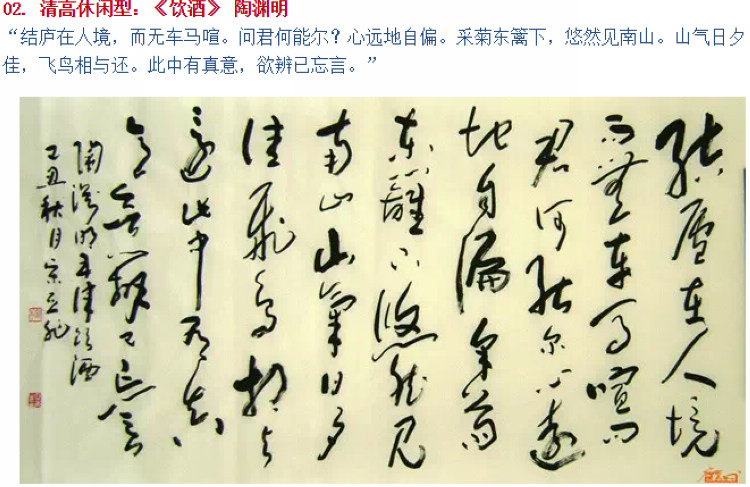 02. 清高休闲型：《饮酒》 陶渊明
“结庐在人境，而无车马喧。问君何能尔？心远地自偏。采菊东篱下，悠然见南山。山气日夕
佳，飞鸟相与还。此中有真意，欲辨已忘言。”
结庐在人境
而無车马喧问
君何能尔心远
地自偏采菊
东籬下悠然见
南山山氣日夕
佳飛鸟相与
还此中有真
意欲辨已忘言
陶渊明五律饮酒
丑秋月